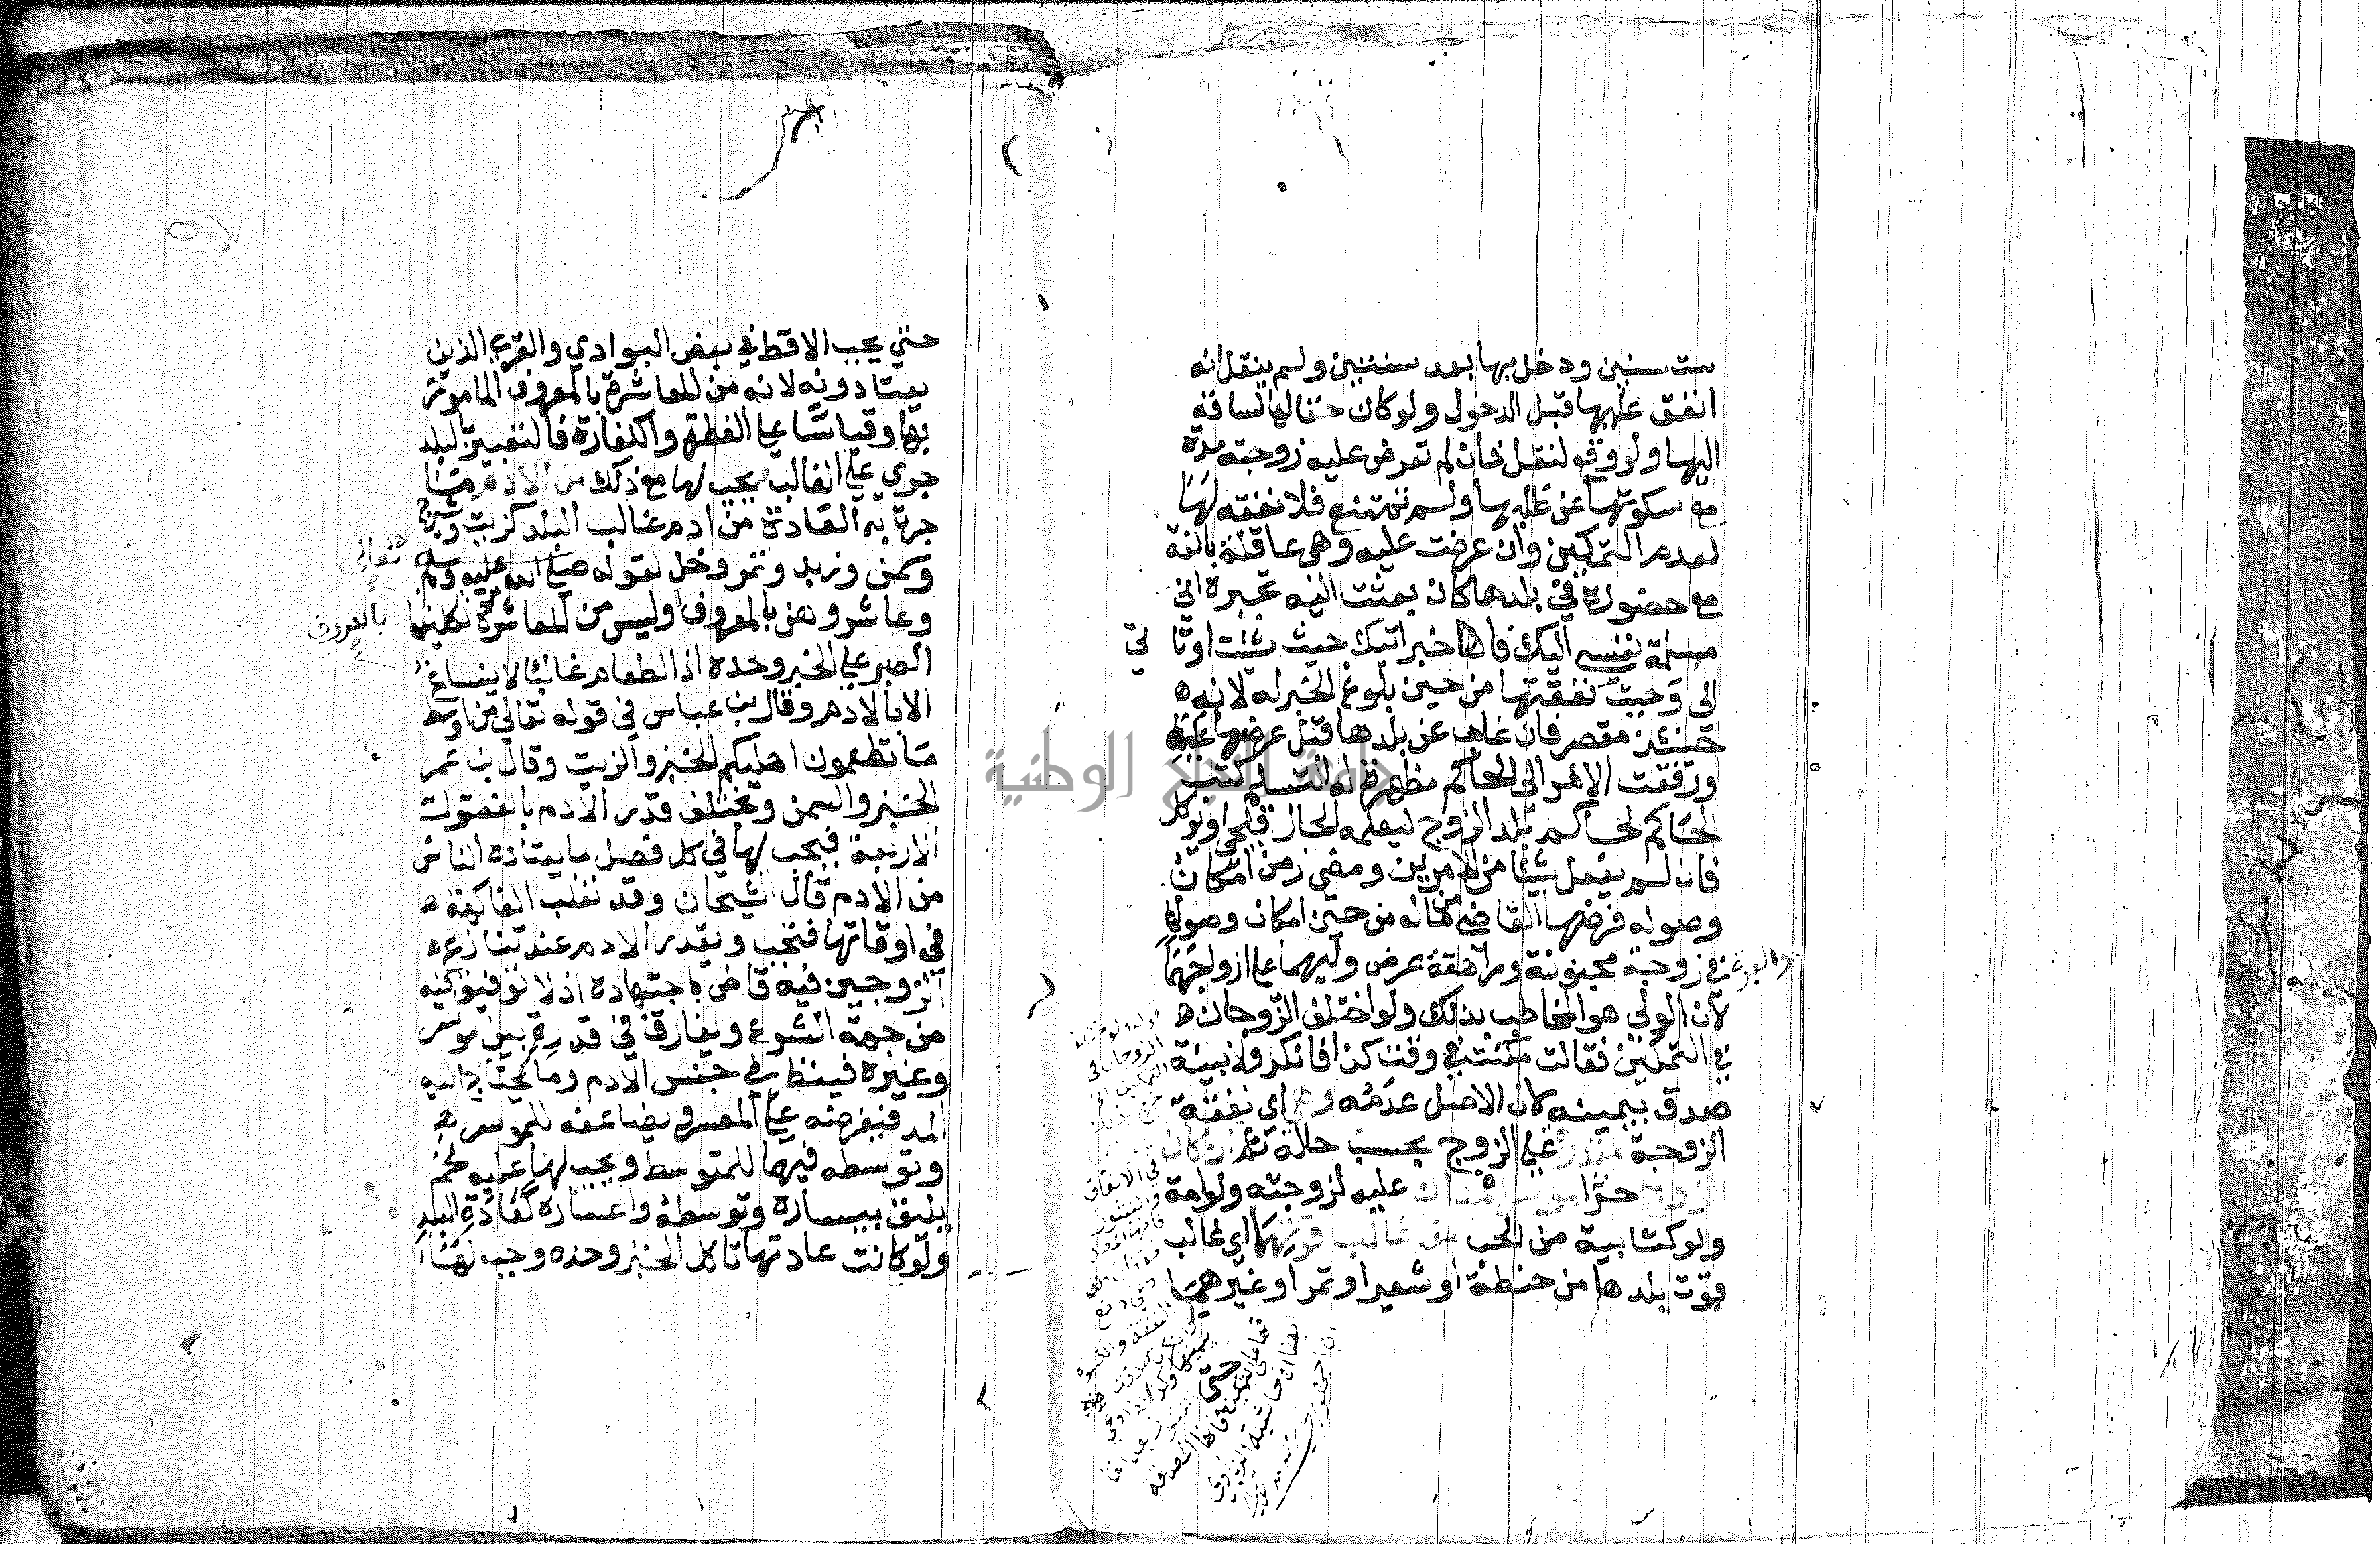 ست سنين ودخل بها بعد سنتين ولم ينقل انه
انفق عليها قبل الدخول ولو كان حقا لها لساقه
اليها ولو وقع لنقل فان لم تعرض عليه زوجته مدة
مع سكوتها عن طلبها ولم تمتنع فلا نفقه لها
لعدم التمكين وان عرضت عليه وهي عاقلة بالغة
مع حضوره في بلدها كان بعثت اليه تخبره اني
مسلمة نفسي اليك فاختر اتيك حيث شئت او تاتي
الي وجبت نفقتها من حين بلوغ الخبر له لانه
حينئذ مقصر فان غاب عن بلدها قبل عرضها عليه
ورفعت الامر الى الحاكم مظهرة له التسليم كتب
الحاكم لحاكم بلد الزوج ليعلمه الحال فيجي او يوكل
فان لم يفعل شيئا من الامرين ومضى زمن امكان
وصوله فرضها القاضي من ماله من حين امكان وصوله
والعبرة في زوجة مجنونة ومراهقة عرض وليهما على ازواجهما
لان الولي هو المخاطب بذلك ولو اختلف الزوجان
في التمكين فقالت مكنت في وقت كذا فانكر ولا بينة
صدق بيمينه لان الاصل عدمه وهي اي نفقة
الزوجة مقدرة على الزوج بحسب حاله ثم ان كان
الزوج حرا موسرا فمدان عليه لزوجته ولو امة
ولو كتابية من الحب من غالب قوتها اي غالب
قوت بلدها من حنطة او شعير او تمر او غيرهما
حتى
حتى يجب الاقط في بعض البوادي والقرى الذين
يعتادونه لانه من المعاشرة بالمعروف المامور
بها وقياسا على الفطرة والكفارة فالتعبير بالبلد
جرى على الغالب ويجب لها مع ذلك من الادم مما
جرت به العادة من ادم غالب البلد كزيت وشيرج
وسمن وزبد وتمر وخل لقوله صلى الله عليه وسلم تعالى
وعاشروهن بالمعروف وليس من المعاشرة تكليفها بالمعروف
الصبر على الخبز وحده اذ الطعام غالبا لا ينساغ
الا بالادم وقال بن عباس في قوله تعالى من اوسط
ما تطعمون اهليكم الخبز والزيت وقال بن عمر
الخبز والسمن ويختلف قدر الادم بالفصول
الاربعة فيجب لها في كل فصل ما يعتاده الناس
من الادم قال الشيخان وقد تغلب الفاكهة
في اوقاتها فتجب ويقدر الادم عند تنازع
الزوجين فيه قاض باجتهاده اذ لا توقيف فيه
من جهة الشرع ويفارق في قدره بين موسر
وغيره فينظر في جنس الادم وما يحتاج اليه
المد فيفرضه على المعسر ويضاعفه للموسر
وتوسطه فيهما للمتوسط ويجب لها عليه لحم
يليق بيساره وتوسطه واعساره كعادة البلد
ولو كانت عادتها تاكل الخبز وحده وجب لها
جامعة النجاح الوطنية